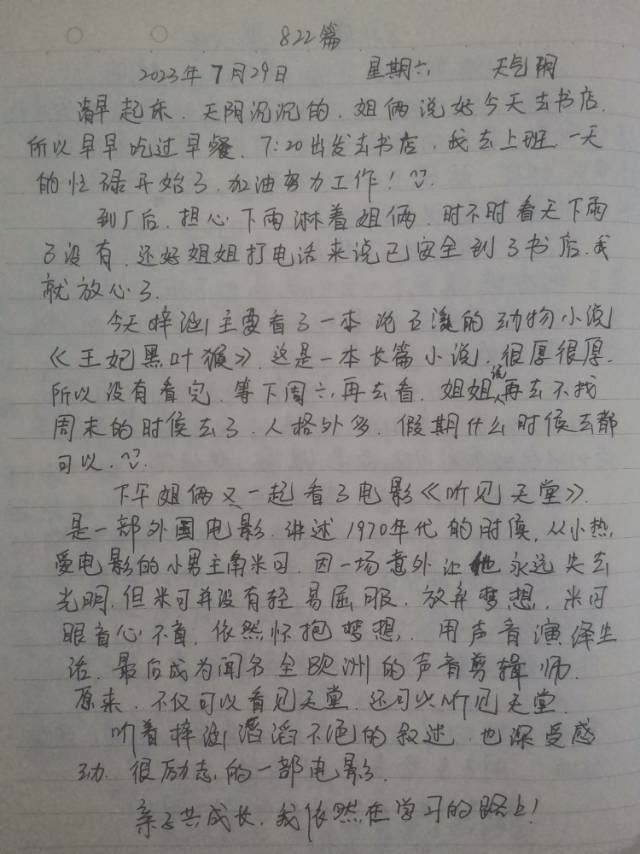 822篇
2023年7月29日 星期六 天气阴
清早起床.天阴沉沉的.姐俩说好今天去书店.
所以早早吃过早餐.7:20出发去书店,我去上班.一天
的忙碌开始了,加油努力工作!
到厂后,担心下雨淋着姐俩.时不时看天下雨
了没有.还好姐姐打电话来说已安全到了书店.我
就放心了.
今天梓涵主要看了一本沈石溪的动物小说
《王妃黑叶猴》.这是一本长篇小说.很厚很厚.
所以没有看完.等下周六再去看.姐姐说再去不找
周末的时侯去了.人格外多.假期什么时侯去都
可以.
下午姐俩又一起看了电影《听见天堂》.
是一部外国电影.讲述1970年代的时侯.从小热
爱电影的小男主角米可.因一场意外让他永远失去
光明.但米可并没有轻易屈服.放弃梦想.米可
眼盲心不盲.依然怀抱梦想.用声音演绎生
活.最后成为闻名全欧洲的声音剪辑师.
原来.不仅可以看见天堂.还可以听见天堂.
听着梓涵滔滔不绝的叙述.也深受感
动.很励志的一部电影.
亲子共成长.我依然在学习的路上!